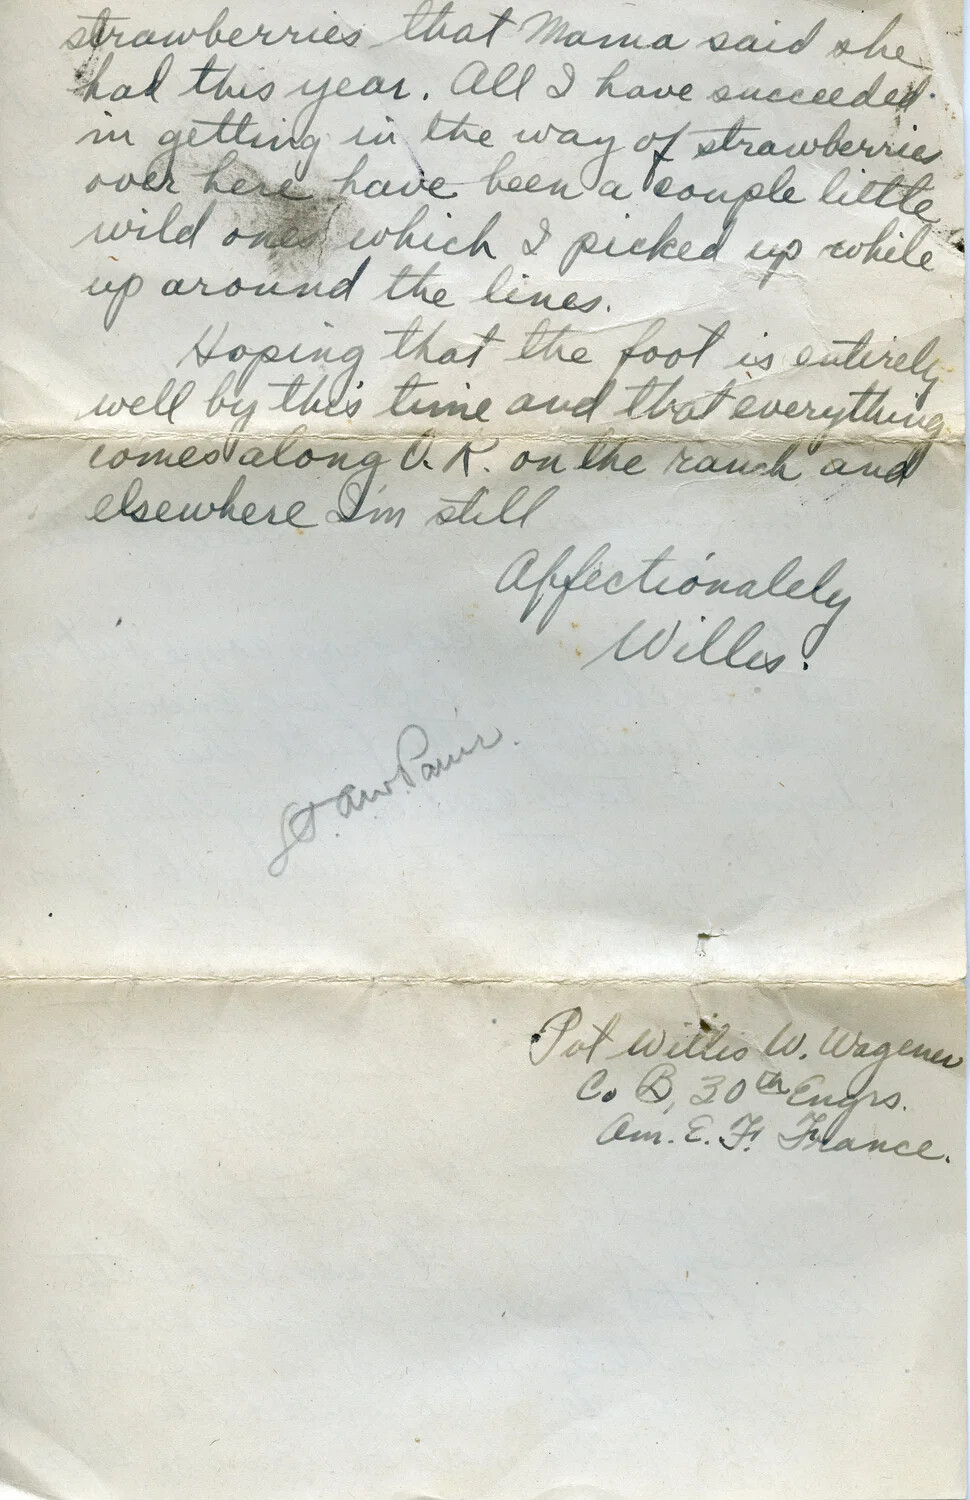 strawberries that Mama said she
had this year. All I have succeeded
in getting in the way of strawberries
over here have been a couple little
wild ones which I picked up while
up around the lines.
Hoping that the foot is entirely
well by this time and that everything
comes along O.K. on the ranch and
elsewhere I'm still
Affectionately
Willis.
Pvt Willis W. Wagener
Co B, 30th Engrs.
Am. E. F. France.